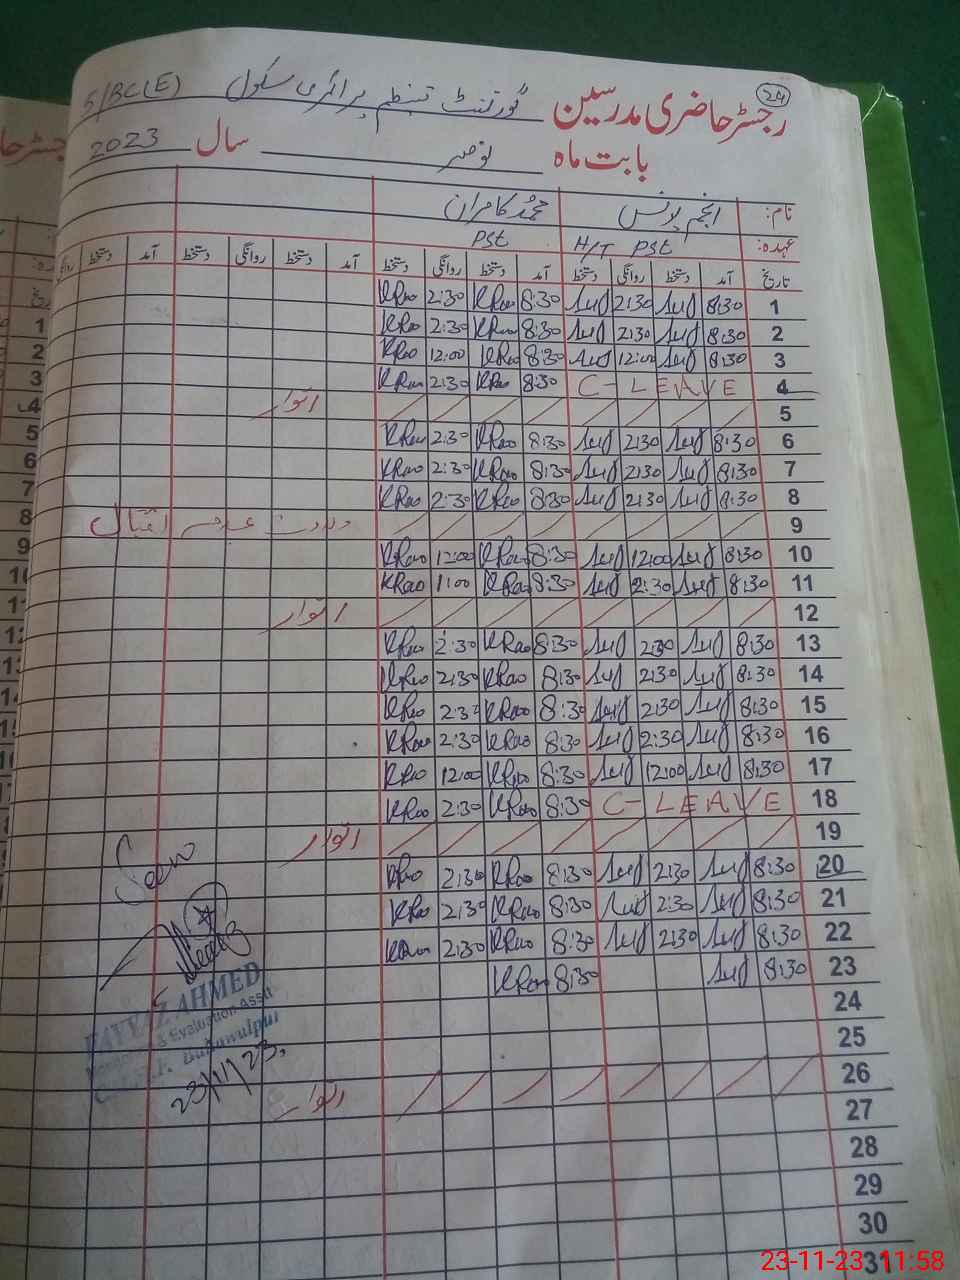 24
رجسٹر حاضری مدرسین گورنمنٹ تنظیم پرائمری سکول 5/BC(E)
بابت ماہ نومبر سال 2023
نام: انجم یونس محمد کامران
عہدہ: H/T PST PST
تاریخ آمد دستخط روانگی دستخط آمد دستخط روانگی دستخط آمد دستخط روانگی دستخط آمد دستخط روانگی
1 8:30 2:30 8:30 KRao 2:30 KRao
2 8:30 2:30 8:30 KRao 2:30 KRao
3 8:30 12:00 8:30 KRao 12:00 KRao
4 C-LEAVE 8:30 KRao 2:30 KRao
5 اتوار
6 8:30 2:30 8:30 KRao 2:30 KRao
7 8:30 2:30 8:30 KRao 2:30 KRao
8 8:30 2:30 8:30 KRao 2:30 KRao
9 ولادت علامہ اقبال
10 8:30 12:00 8:30 KRao 12:00 KRao
11 8:30 2:30 8:30 KRao 1:00 KRao
12 اتوار
13 8:30 2:30 8:30 KRao 2:30 KRao
14 8:30 2:30 8:30 KRao 2:30 KRao
15 8:30 2:30 8:30 KRao 2:30 KRao
16 8:30 2:30 8:30 KRao 2:30 KRao
17 8:30 12:00 8:30 KRao 12:00 KRao
18 C-LEAVE 8:30 KRao 2:30 KRao
19 اتوار
20 8:30 2:30 8:30 KRao 2:30 KRao
21 8:30 2:30 8:30 KRao 2:30 KRao
22 8:30 2:30 8:30 KRao 2:30 KRao
23 8:30 8:30 KRao
24
25
26 اتوار
27
28
29
30
31
Seen
FAYYAZ AHMED
& Evaluation Asstt
Bahawalpur
23/11/23.
23-11-23 11:58